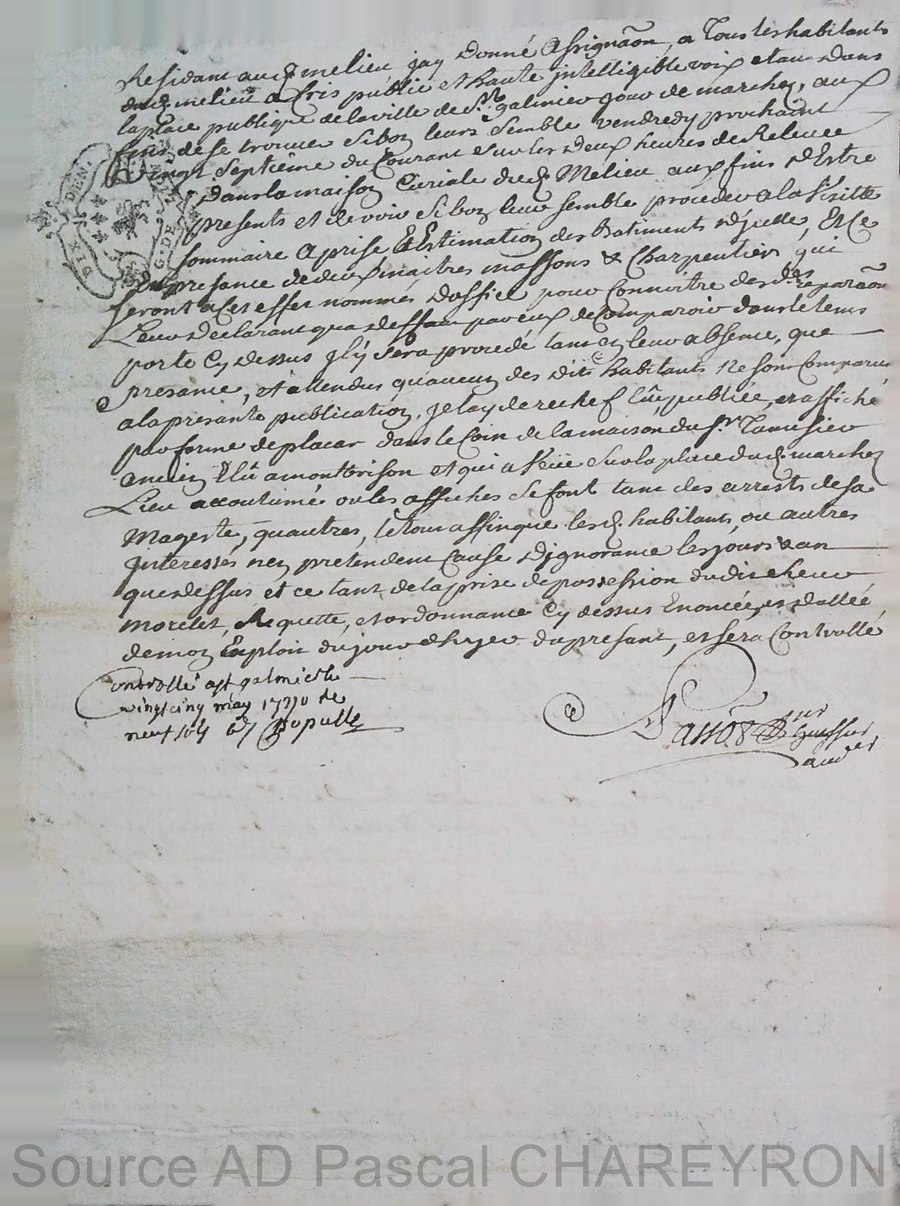 Residant aud. melieu jay donné assignãon, a Tous les habitants
dud. melieu a Cris public et haute intelligible voix etant dans
la place publique de la ville de st. galmier jour de marchez, aux
fins de se trouver si bon leurs semble vendredy prochain
vingt septième du Courant sur les deux heures de Relevée
dans la maison Curiale dud. Melieu aux fins d'Estre
presents et de voir si bon leur semble proceder a la Visitte
sommaire aprise Et Estimation des Batiments d'jcelle, Et Ce
En presance de deux maitres massons & Charpentiers qui
seront a Cet effet nommés d'office pour Connoitre desd. reparãon
Leur declarant qua deffaut par eux de Comparoir dans le tems
porté Cy dessus jl y sera procedé tant en leur absence, que
presance, et attendus qu'aucun des dit habitants ne sont Comparus
a la presante publication, je lay de rechef lüe, publiée, et affiché
par forme de placar dans le Coin de la maison du sr. Tamisier
ancien Elû a montbrison et qui a veüe sur la place dud. marchez
Lieu accoutumé ou les affiches se font tant des arrests de sa
Magesté, quautres, le tout affinque lesd. habitants, ou autres
jnteressés nen pretendent Cause d'ignorance les jours & an
que dessus et ce tant de la prise de possession dudit sieur
morelet, Requette, et ordonnance Cy dessus Enoncée, et dattée,
de mon Exploit du jour d'hyer du present, et sera Controllé
Controllé a st galmier le
vingt cinq may 1740 Re
neuf sols
DIX DEN.
G. DE
Source AD Pascal CHAREYRON